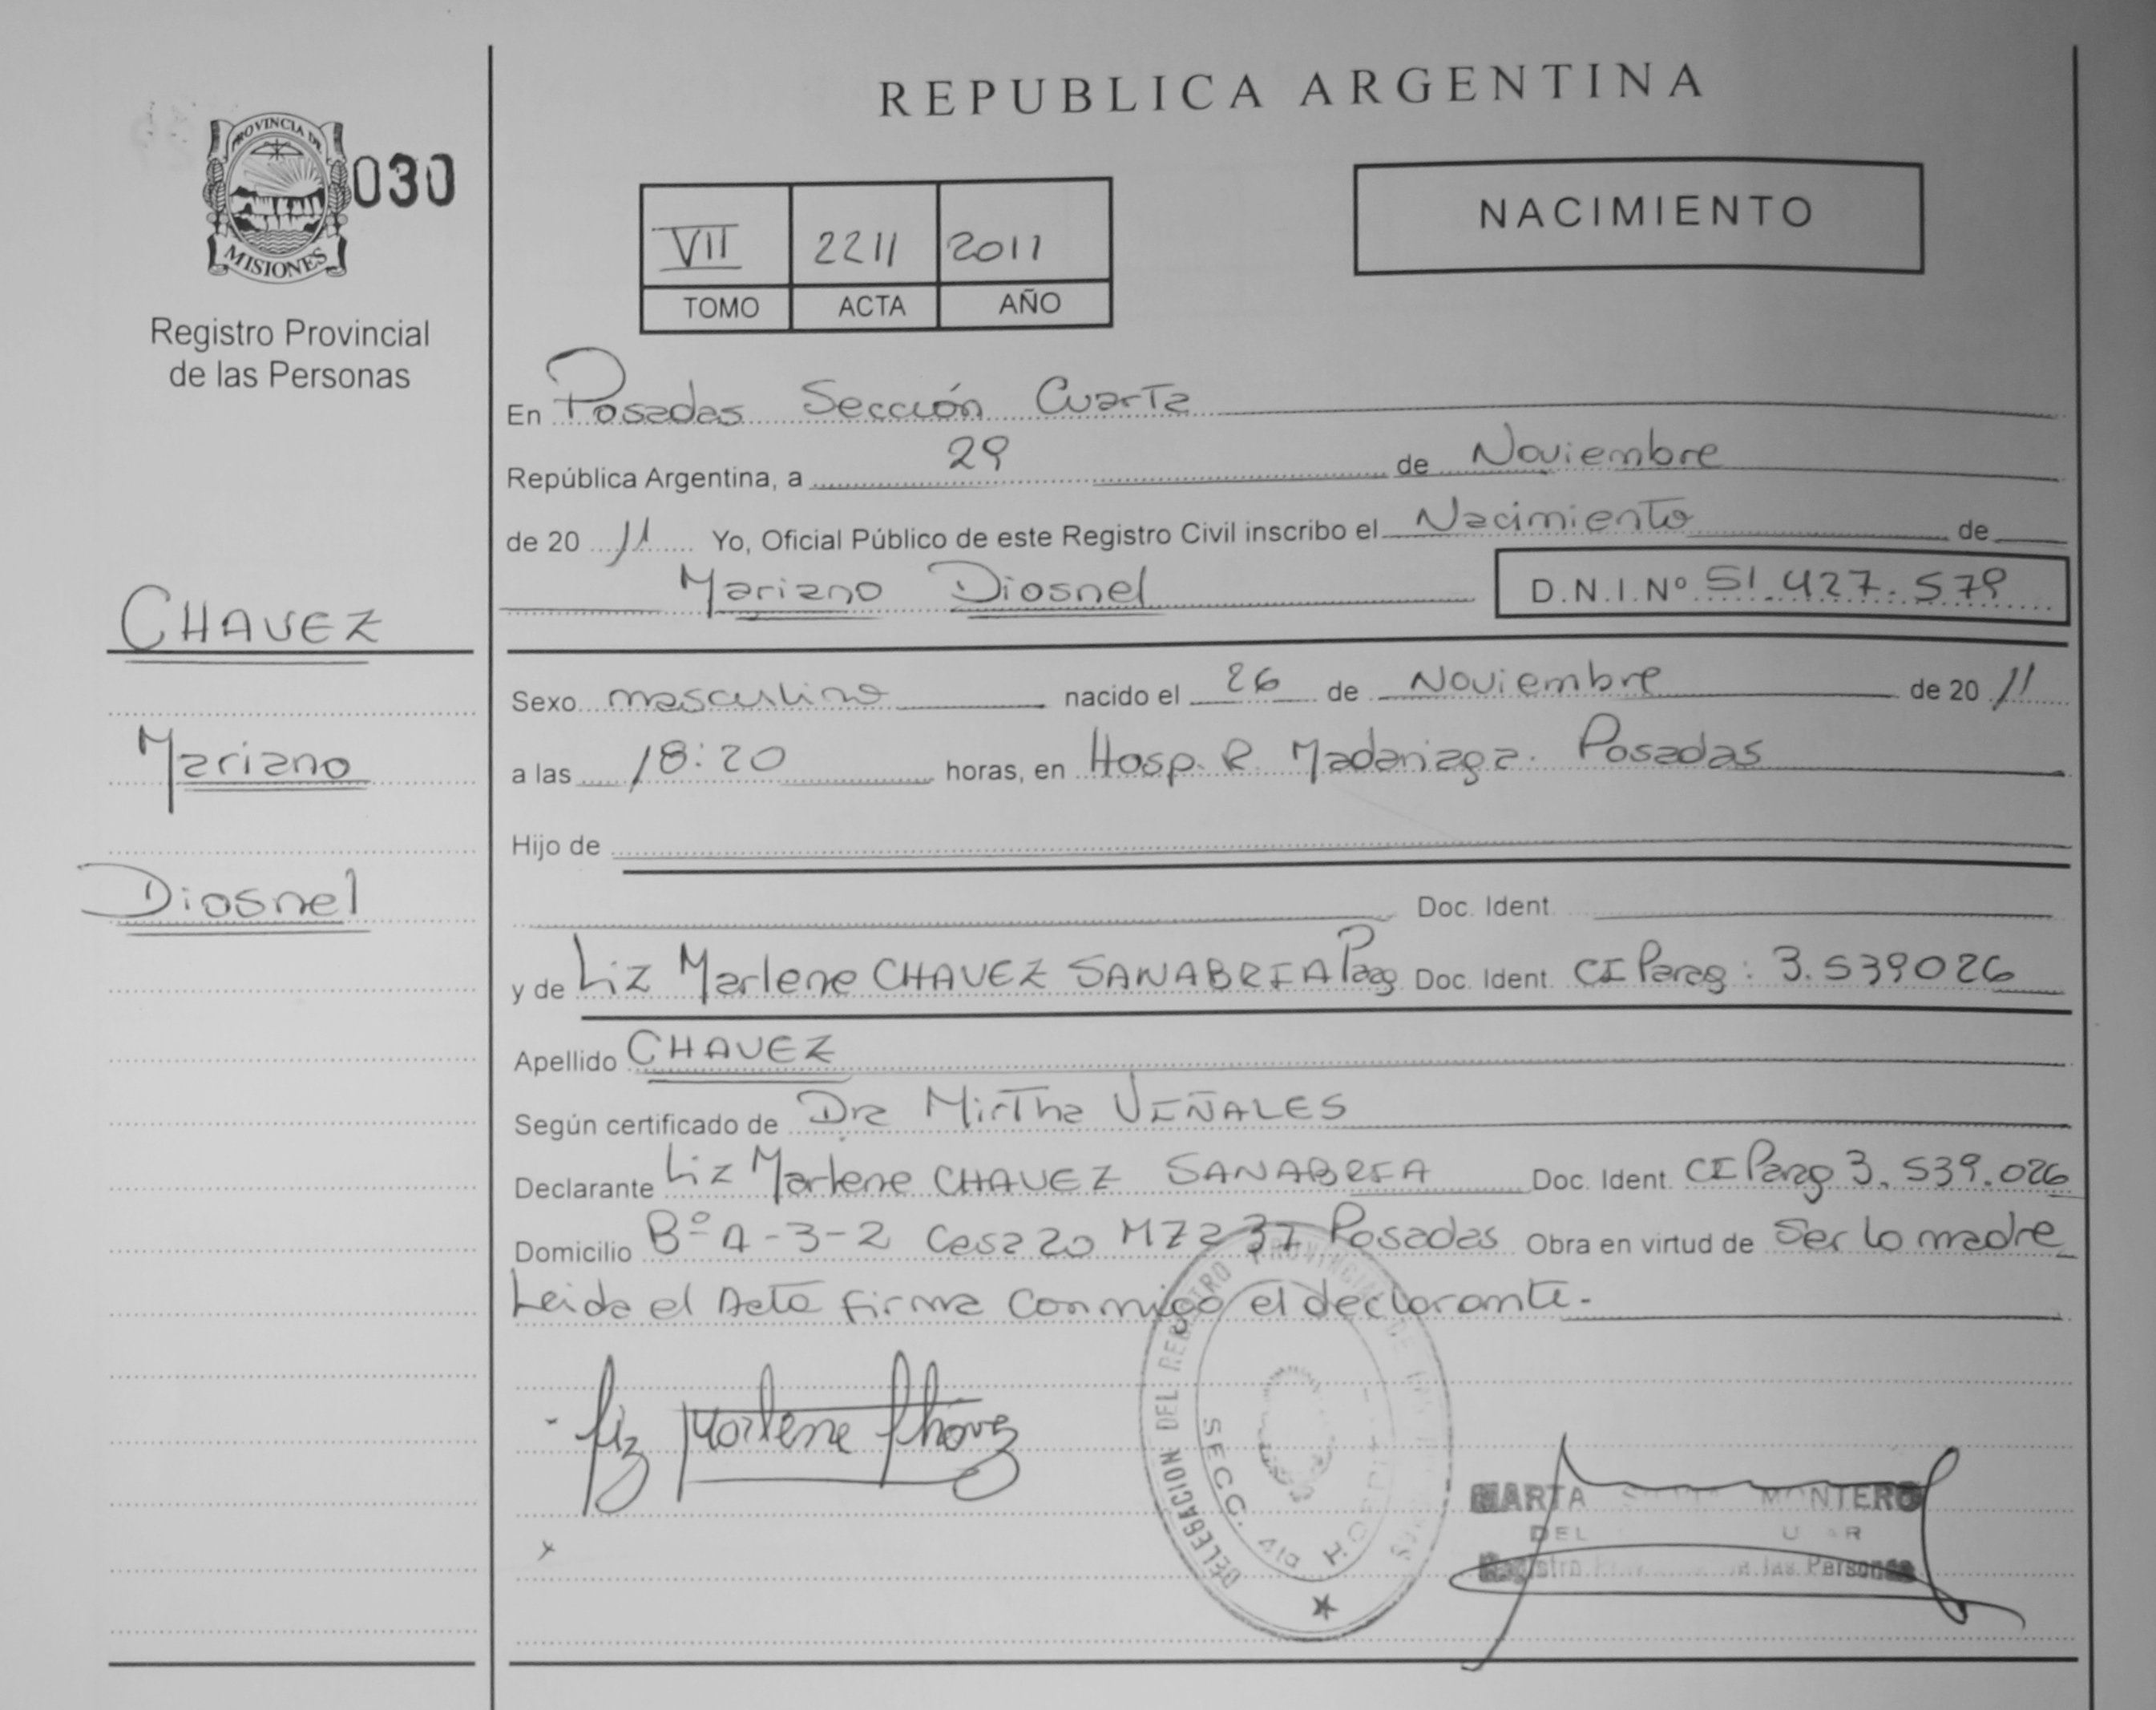 REPUBLICA ARGENTINA
PROVINCIA DE
MISIONES
030
Registro Provincial
de las Personas
NACIMIENTO
VII 2211 2011
TOMO ACTA AÑO
En Posadas Sección Cuarta
República Argentina, a 29 de Noviembre
de 20 11 Yo, Oficial Público de este Registro Civil inscribo el Nacimiento de
Mariano Diosnel D.N.I.Nº 51.427.579
CHAVEZ
Mariano
Diosnel
Sexo masculino nacido el 26 de Noviembre de 20 11
a las 18:20 horas, en Hosp. R. Madariaga. Posadas
Hijo de
Doc. Ident.
y de Liz Marlene CHAVEZ SANABRIA Parag Doc. Ident. CI Parag: 3.539026
Apellido CHAVEZ
Según certificado de Dra Mirtha VIÑALES
Declarante Liz Marlene CHAVEZ SANABRIA Doc. Ident. CI Parag 3.539.026
Domicilio Bº A-3-2 Casa 20 MZ 237 Posadas Obra en virtud de Ser la madre
Leida el Acta firma conmigo el declarante.-
Liz Marlene Chávez
DELEGACION DEL REGISTRO PROVINCIAL DE LAS
SECC. 4ta
MARTA MONTERO
DEL
Registro de las Personas